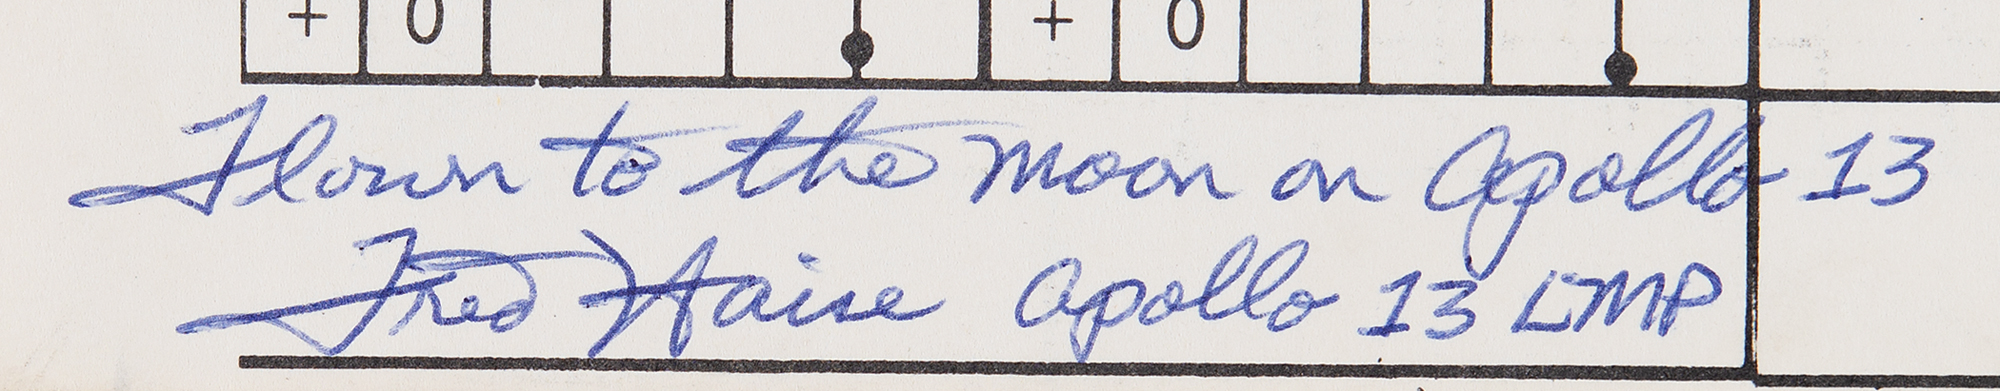 + 0 + 0
Flown to the moon on Apollo 13
Fred Haise Apollo 13 LMP